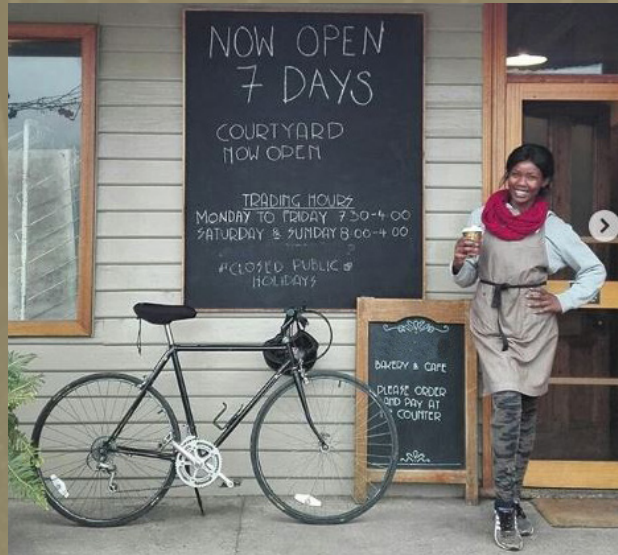 NOW OPEN
7 DAYS
COURTYARD
NOW OPEN
TRADING HOURS
MONDAY TO FRIDAY 7 30-4:00
SATURDAY & SUNDAY 8:00-4:00
#CLOSED PUBLIC
HOLIDAYS
BAKERY & CAFE
PLEASE ORDER
AND PAY AT
COUNTER